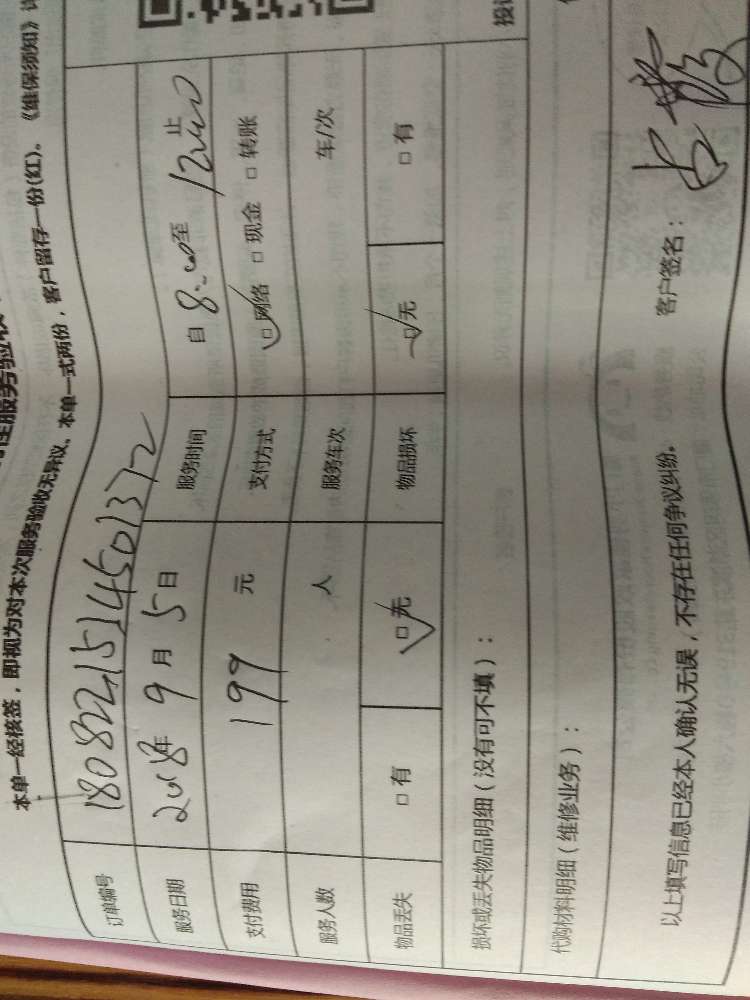 住服务验收
本单一经核签，即视为对本次服务验收无异议。本单一式两份，客户留存一份(红)。《维保须知》
订单编号 1808221514501372
服务日期 2018年 9 月 5 日 服务时间 自 8:00 至 12:00 止
支付费用 199 元 支付方式 □网络 □现金 □转账
服务人数 人 服务车次 车/次
物品丢失 □有 □无 物品损坏 □无 □有
损坏或丢失物品明细（没有可不填）：
代购材料明细（维修业务）：
以上填写信息已经本人确认无误，不存在任何争议纠纷。 客户签名：